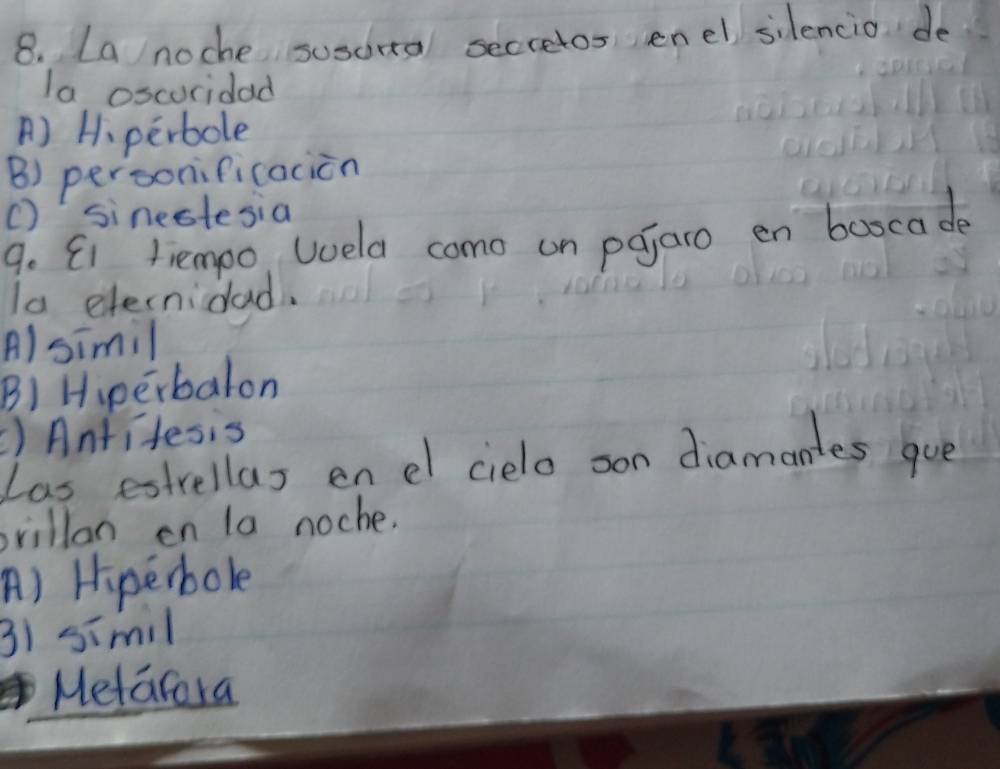 8. La noche susurra secretos en el silencio de
la oscuridad
A) Hipérbole
B) personificación
C) sinestesia
9. El tiempo vuela como un pájaro en busca de
la eternidad.
A) símil
B) Hipérbaton
C) Antítesis
Las estrellas en el cielo son diamantes que
brillan en la noche.
A) Hipérbole
B) símil
Metáfora